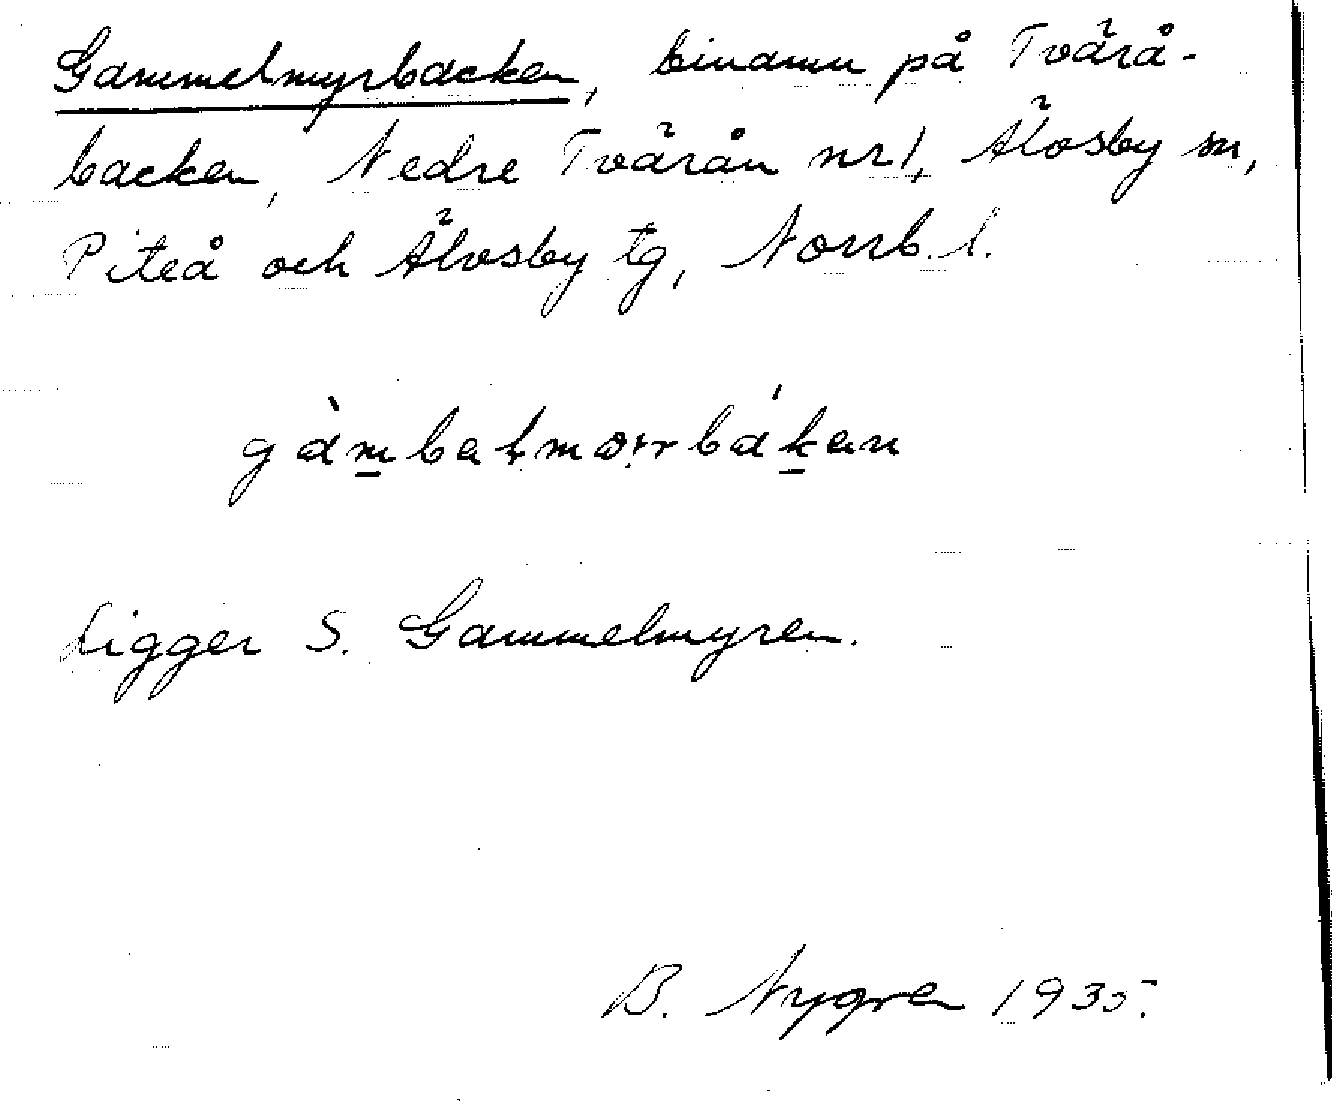 Gammelmyrbacken, binamn på Tvärå-
backen, Nedre Tvärån nr 1, Älvsby sn,
Piteå och Älvsby tg, Norrb. l.
Ligger S. Gammelmyren.
B. Nygren 1935.